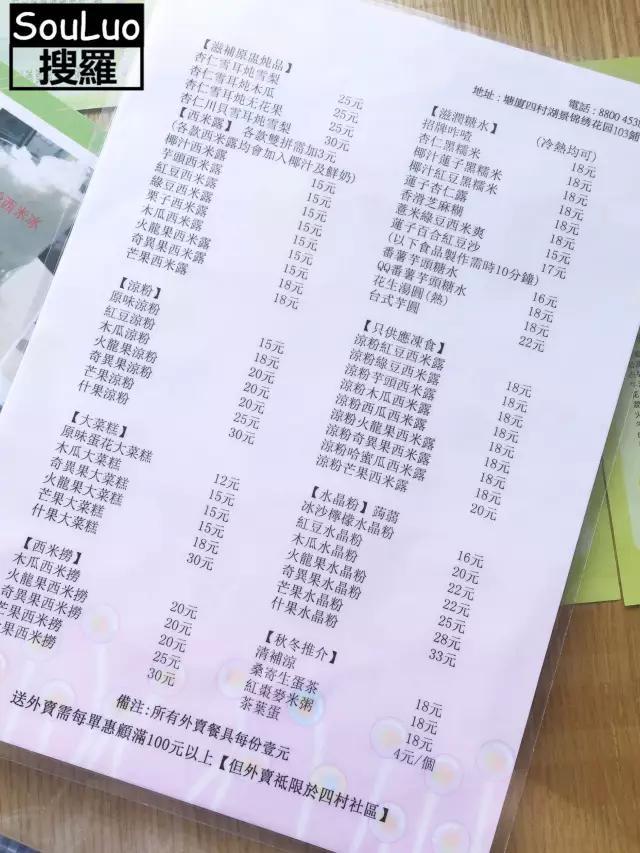 SouLuo
搜羅
電話：8800 453
地址：塘廈四村湖景锦绣花园103鋪
【滋補原盅炖品】
杏仁雪耳炖雪梨 25元
杏仁雪耳炖木瓜 25元
杏仁雪耳炖无花果 25元
杏仁川贝雪耳炖雪梨 30元
【西米露】 各款雙拼需加3元
(各款西米露均會加入椰汁及鮮奶)
椰汁西米露 15元
芋頭西米露 15元
紅豆西米露 15元
綠豆西米露 15元
栗子西米露 15元
木瓜西米露 15元
火龍果西米露 15元
奇異果西米露 18元
芒果西米露 18元
【涼粉】
原味涼粉 15元
紅豆涼粉 18元
木瓜涼粉 20元
火龍果涼粉 20元
奇異果涼粉 20元
芒果涼粉 25元
什果涼粉 30元
【大菜糕】
原味蛋花大菜糕 12元
木瓜大菜糕 15元
奇異果大菜糕 15元
火龍果大菜糕 15元
芒果大菜糕 18元
什果大菜糕 30元
【西米撈】
木瓜西米撈 20元
火龍果西米撈 20元
奇異果西米撈 20元
芒果西米撈 25元
果西米撈 30元
【滋潤糖水】 (冷熱均可)
招牌咋喳 18元
杏仁黑糯米 18元
椰汁蓮子黑糯米 18元
椰汁紅豆黑糯米 18元
蓮子杏仁露 18元
香滑芝麻糊 18元
薏米綠豆西米爽 15元
蓮子百合紅豆沙 17元
(以下食品製作需時10分鐘)
番薯芋頭糖水 16元
QQ番薯芋頭糖水 18元
花生湯圓(熱) 18元
台式芋圓 22元
【只供應凍食】
涼粉紅豆西米露 18元
涼粉綠豆西米露 18元
涼粉芋頭西米露 18元
涼粉木瓜西米露 18元
涼粉西瓜西米露 18元
涼粉火龍果西米露 18元
涼粉奇異果西米露 18元
涼粉哈蜜瓜西米露 18元
涼粉芒果西米露 20元
【水晶粉】蒟蒻
冰沙檸檬水晶粉 16元
紅豆水晶粉 20元
木瓜水晶粉 22元
火龍果水晶粉 22元
奇異果水晶粉 25元
芒果水晶粉 28元
什果水晶粉 33元
【秋冬推介】
清補涼 18元
桑寄生蛋茶 18元
紅棗麥米粥 18元
茶葉蛋 4元/個
備注：所有外賣餐具每份壹元
送外賣需每單惠顧滿100元以上【但外賣祗限於四村社區】